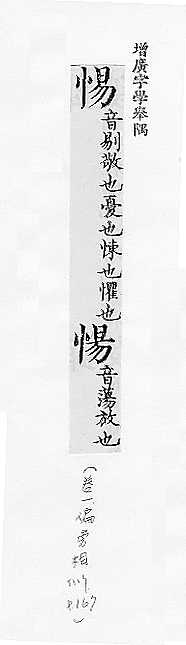 增廣字學舉隅
惕音剔敬也憂也悚也懼也惕音蕩放也
(卷一偏旁相似 P.167)